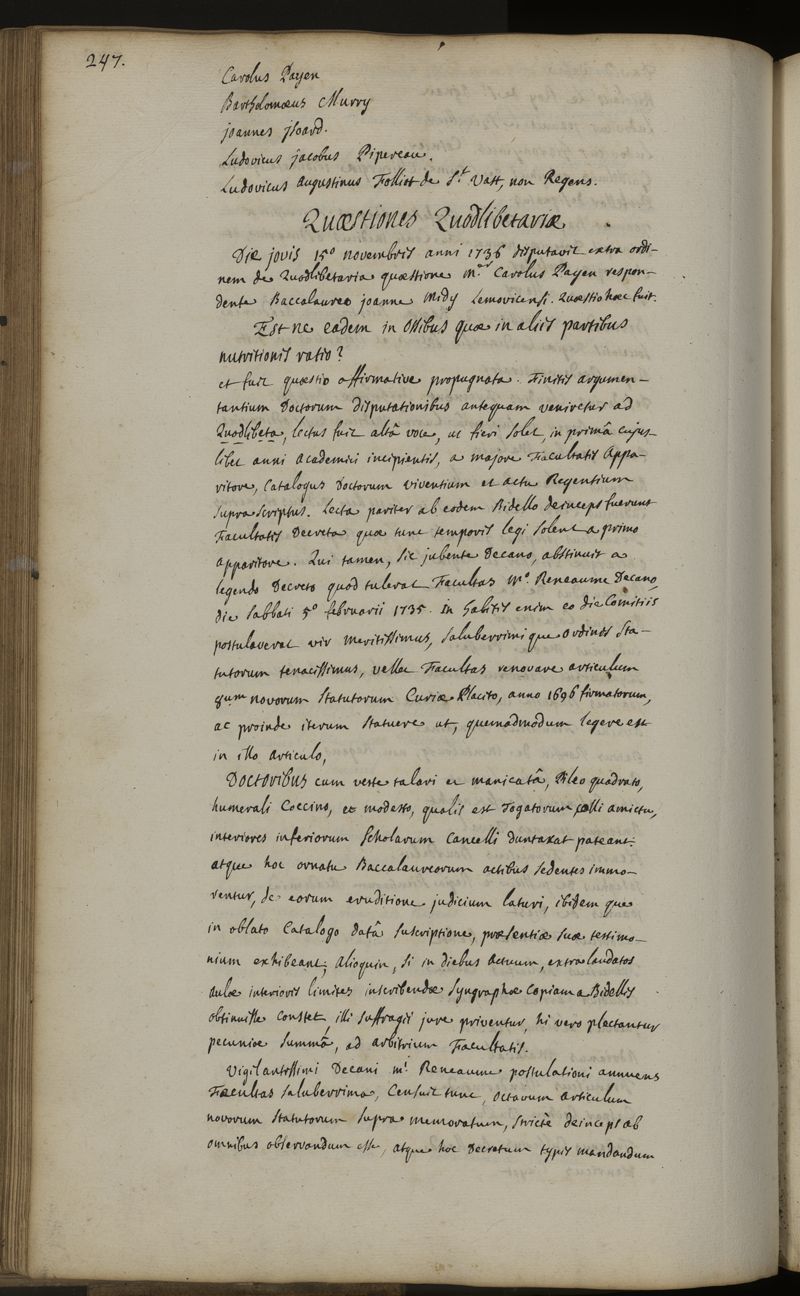 247.
Carolus Payen
Bartholomæus Murry
joannes jsoard.
Ludovicus jacobus Pipereau.
Ludovicus Augustinus Folliot de St. Vast, non Regens.
Quæstiones Quodlibetariæ.
Die jovis 15º novembris anni 1736 disputavit extra ordi-
nem de Quodlibetaria quæstione Mr. Carolus Payen respon-
dente Baccalaureo joanne Midy Lemovicensi. Quæstio hæc fuit.
Est ne eadem in ossibus quæ in aliis partibus
nutritionis ratio?
et fuit quæstio affirmative propugnata. Finitis argumen-
tantium Doctorum disputationibus antequam veniretur ad
Quodlibeta, lectus fuit altâ voce, ut fieri solet, in primâ cujus-
libet anni Academici incipientis, a majore Facultatis Appa-
ritore, Catalogus Doctorum viventium et actu Regentium
suprascriptus. Lecta pariter ab eodem Bidello deinceps fuerunt
Facultatis Decreta quæ tunc temporis legi solent a primo
apparitore. Qui tamen, sic jubente Decano, abstinuit a
legendo Decreto quod tulerat Facultas Mº. Reneaume Decano,
die sabbati 5º februarii 1735. In habitis enim eo die Comitiis
postulaverat vir meritissimus, saluberrimique ordinis sta-
tutorum tenacissimus, vellet Facultas renovare articulum
8um novorum statutorum Curiæ Placito, anno 1696 firmatorum,
ac proinde iterum statuere ut, quemadmodum legere est
in illo articulo,
Doctoribus cum veste talari et manicatâ, Pileo quadrato,
humerali Coccino, et modesto, qualis est Togatorum colli amictu,
interiores inferiorum scholarum Cancelli duntaxat pateant;
atque hoc ornatu Baccalaureorum actibus sedentes immo-
rentur, de eorum eruditione judicium laturi, ibidem que
in oblato Catalogo datâ suscriptione, præsentiæ suæ testimo-
nium exhibeant; alioquin, si in diebus actuum, extra laudatos
aulæ interioris limites inscribendæ syngraphæ copiam a Bidellis
obtinuisse constet, illi suffragii jure priventur, hi vero plectantur
pecuniæ summâ, ad arbitrium Facultatis.
Vigilantissimi Decani mi. Reneaume postulationi annuens
Facultas saluberrima, Censuit tunc, octavum articulum
novorum statutorum supra memoratum, strictè deinceps ab
omnibus observandum esse, atque hoc Decretum typis mandandum